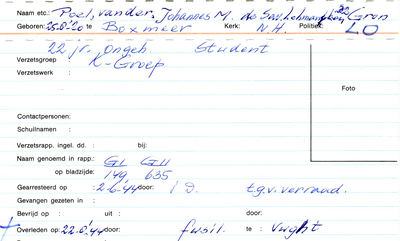 Naam etc.: Poel, vander, Johannes M. de Sav. Lohmanplein 22 Gron
Geboren: 25-8-'20 te Boxmeer Kerk: N.H. Politiek:
LO
22 jr. ongeh. Student
Verzetsgroep : K-Groep
Verzetswerk :
Foto
Contactpersonen:
Schuilnamen :
Verzetsrapp. ingel. dd. : bij:
Naam genoemd in rapp.: GI GII
op bladzijde: 149, 635
Gearresteerd op : 2-6-'44 door: S.D. t.g.v. verraad.
Gevangen gezeten in :
Bevrijd op : uit : door:
Overleden op: 22-8-'44 door: fusil. te : Vught